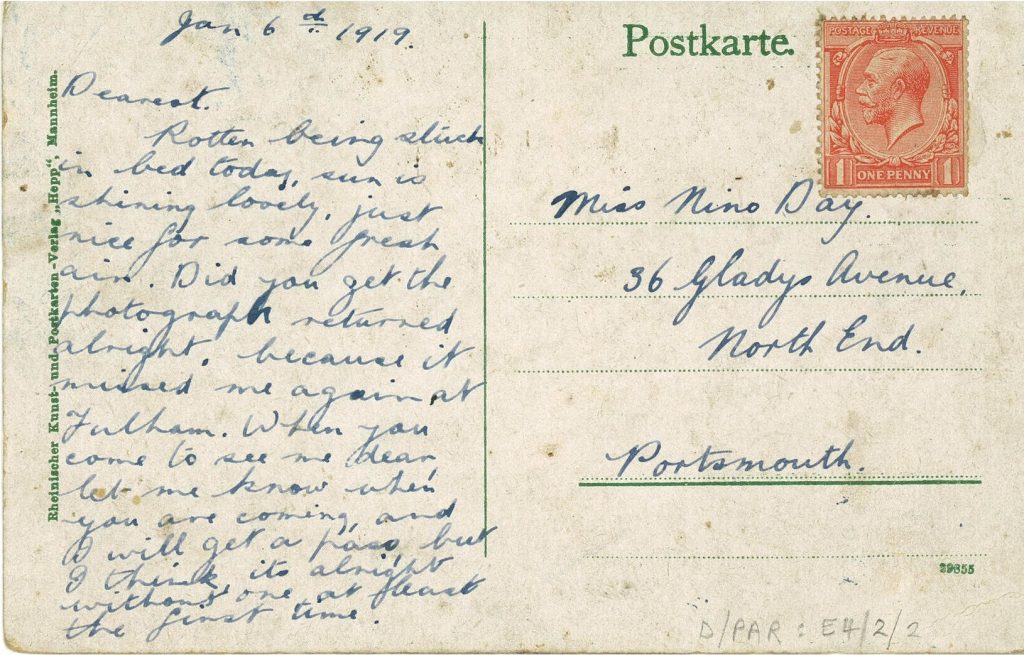 Jan 6th. 1919.
Dearest.
Rotten being stuck
in bed today, sun is
shining lovely, just
nice for some fresh
air. Did you get the
photograph returned
alright, because it
missed me again at
Fulham. When you
come to see me dear,
let me know when
you are coming, and
I will get a pass, but
I think its alright
without one at least
the first time.
Rheinischer Kunst- und Postkarten-Verlag „Hepp“, Mannheim.
Postkarte.
POSTAGE REVENUE
1 ONE PENNY 1
Miss Nino Day.
36 Gladys Avenue,
North End.
Portsmouth.
29655
D/PAR: E4/2/2